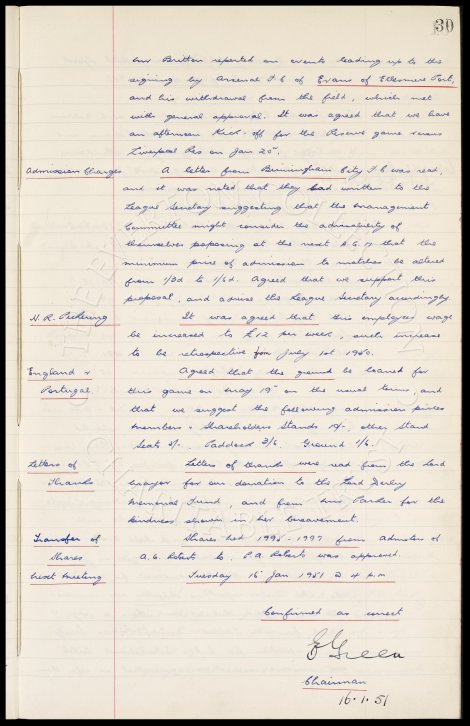 30
Mr Britton reported on events leading up to the
signing by Arsenal F C of Evans of Ellesmere Port,
and his withdrawal from the field, which met
with general approval. It was agreed that we have
an afternoon kick-off for the Reserve game versus
Liverpool Res on Jan 20".
Admission Charges A letter from Birmingham City F C was read,
and it was noted that they had written to the
League Secretary suggesting that the Management
Committee might consider the advisability of
themselves proposing at the next A.G.M that the
minimum price of admission to matches be altered
from 1/3d to 1/6d. Agreed that we support this
proposal, and advise the League Secretary accordingly.
H. R. Pickering It was agreed that this employees wage
be increased to £12 per week, such increase
to be retrospective from July 1st 1950.
England v Agreed that the ground be loaned for
Portugal. this game on May 19" on the usual terms, and
that we suggest the following admission prices
Members & Shareholders Stands 10/-, other Stand
Seats 5/-. Paddock 3/6. Ground 1/6.
Letters of Letters of thanks were read from the Lord
Thanks Mayor for our donation to the Lord Derby
Memorial Fund, and from Mrs Parker for the
kindness shown in her bereavement.
Transfer of Shares Nos 1995 - 1997 from Admstors of
Shares A. G. Roberts to P A Roberts was approved.
Next Meeting Tuesday 16" Jan 1951 @ 4 p.m
Confirmed as correct
E Green
Chairman
16.1.51